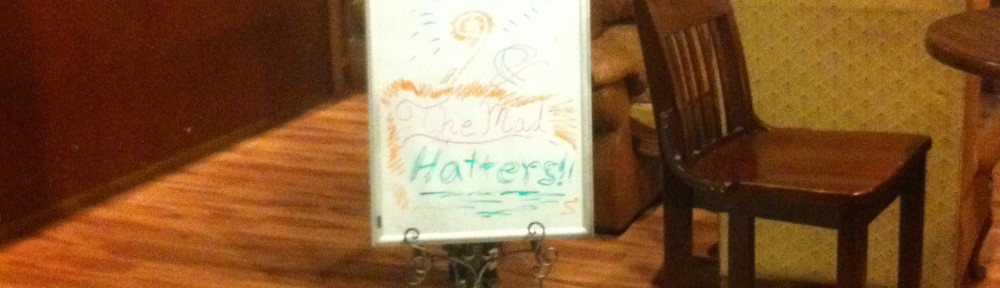 &
The Mad
Hatters!!